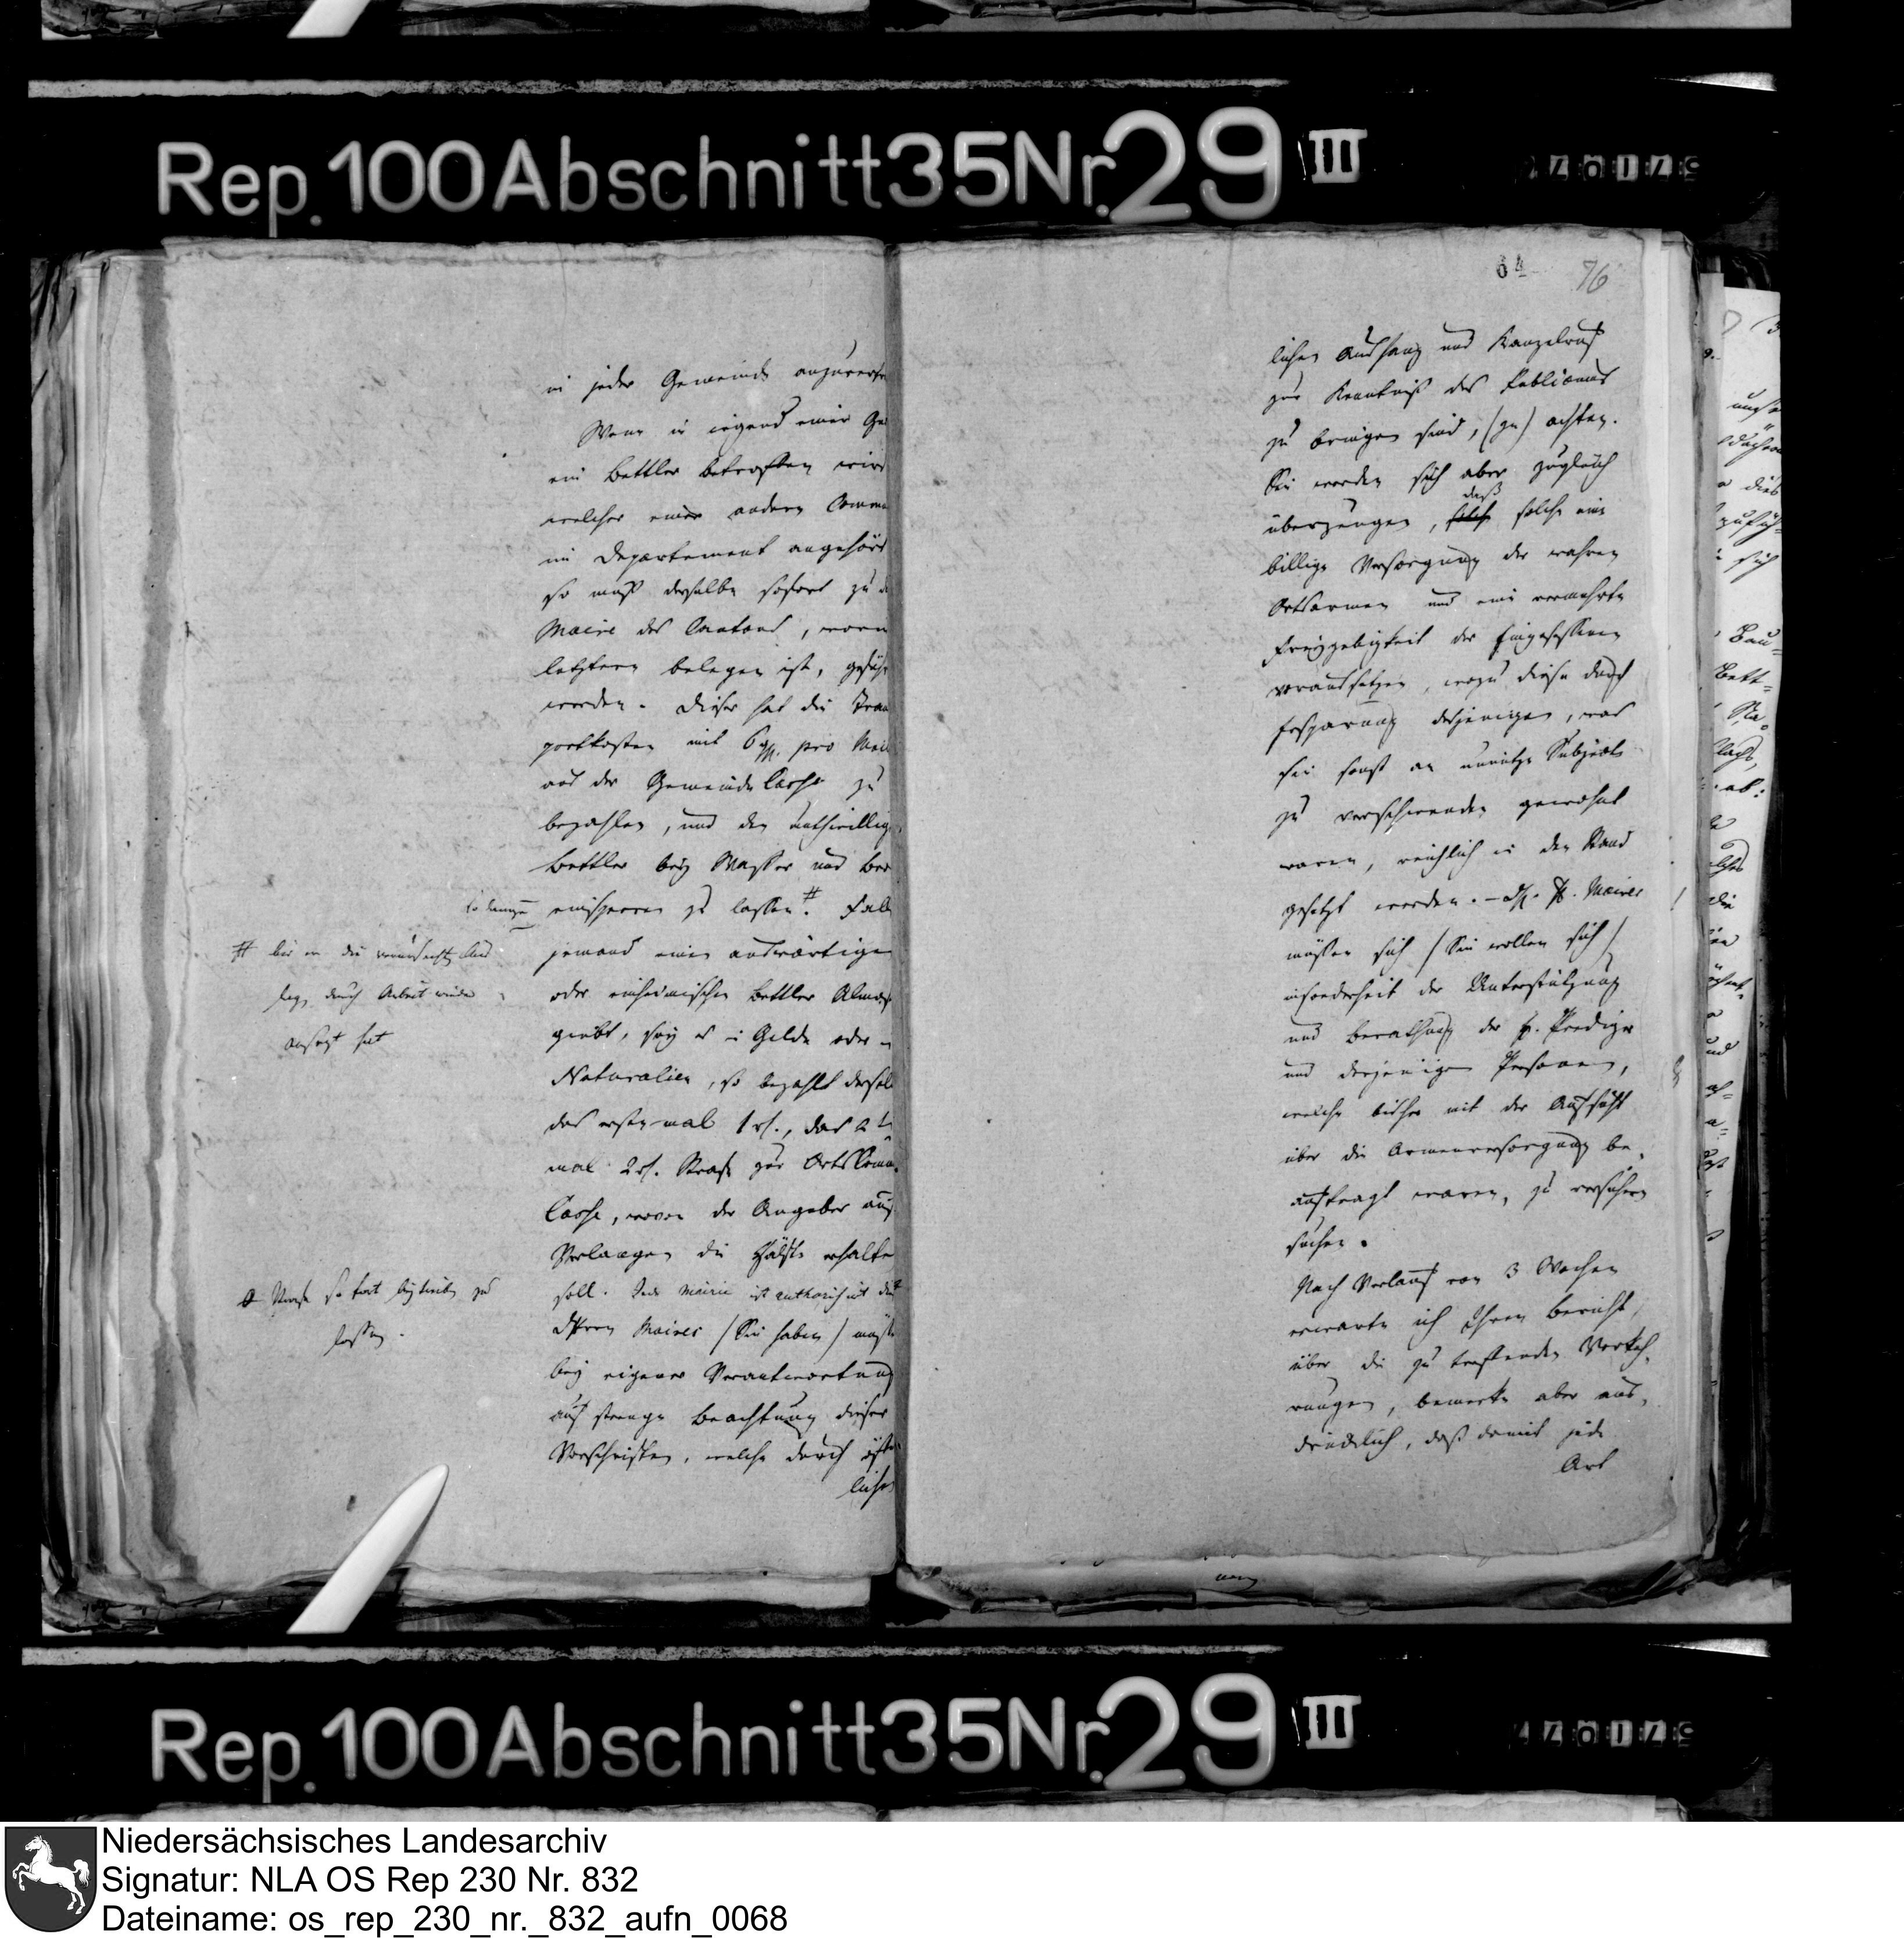 Rep. 100 Abschnitt 35 Nr. 29 III
in jeder Gemeinde
Wenn in irgend einer Ge
ein Bettler betroffen wird
welcher einer andern Comm
im Departement angehört
so muß derselbe sofort zu d
Maire des Cantons, worin
letztere belegen ist, geführ
werden. Dieser hat die Tran
portkosten mit 6 ggr. pro Meil
aus der Gemeinde Casse zu
bezahlen, und den muthwillig
Bettler bey Wasser und Bro
so lange
einsperren zu lassen #. Fall
# bis er die verursachten Aus
lagen durch Arbeit wieder
ersetzt hat
jemand einen auswärtigen
oder einheimischen Bettler Almos
giebt, sey es in Gelde oder in
Naturalien, so bezahlt dersel
das erste mal 1 rt., das 2 te
mal 2 rt. Strafe zur Orts Commu
Casse, wovon der Angeber auf
Verlangen die Hälfte erhalten
soll. Jede Mairie ist authorisirt die
Strafe sofort beytreiben zu
lassen.
Herren Maires (Sie haben) müss
bey eigener Verantwortung
auf strenge Beachtung dieser
Vorschriften, welche durch öffent
lichen
64 76
lichen Aushang und Kanzelruf
zur Kenntniß des Publicums
zu bringen sind, (zu) achten.
Sie werden sich aber zugleich
daß
überzeugen, solche eine
billige Versorgung der wahren
Ortsarmen und eine vermehrte
Freygebigkeit der Eingesessenen
voraussetzen, wozu diese durch
Ersparung desjenigen, was
sie sonst an unnütze Subjecte
zu verschwenden gewohnt
waren, reichlich in den Stand
gesetzt werden. – Maires
müssen sich (Sie wollen sich)
insonderheit der Unterstützung
und Berathung der H. Prediger
und derjenigen Personen,
welche bisher mit der Aufsicht
über die Armenversorgung be-
auftragt waren, zu versichern
suchen.
Nach Verlauf von 3 Wochen
erwarte ich Ihren Bericht,
über die zu treffenden Vorkeh-
rungen, bemerke aber aus-
drücklich, daß damit jede
Art
Rep. 100 Abschnitt 35 Nr. 29 III
Niedersächsisches Landesarchiv
Signatur: NLA OS Rep 230 Nr. 832
Dateiname: os_rep_230_nr._832_aufn_0068